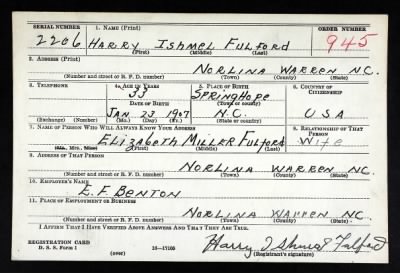 SERIAL NUMBER 1. NAME (Print) ORDER NUMBER
2206 HARRY ISHMEL FULFORD 945
(First) (Middle) (Last)
2. ADDRESS (Print)
NORLINA WARREN N.C.
(Number and street or R. F. D. number) (Town) (County) (State)
3. TELEPHONE 4. AGE IN YEARS 5. PLACE OF BIRTH 6. COUNTRY OF CITIZENSHIP
33 SPRING HOPE
DATE OF BIRTH (Town or county)
JAN 23 1907 N.C. USA
(Exchange) (Number) (Mo.) (Day) (Yr.) (State or country)
7. NAME OF PERSON WHO WILL ALWAYS KNOW YOUR ADDRESS 8. RELATIONSHIP OF THAT PERSON
ELIZABETH MILLER FULFORD Wife
(Mr., Mrs., Miss) (First) (Middle) (Last)
9. ADDRESS OF THAT PERSON
NORLINA WARREN N.C.
(Number and street or R. F. D. number) (Town) (County) (State)
10. EMPLOYER'S NAME
E. F. BENTON
11. PLACE OF EMPLOYMENT OR BUSINESS
NORLINA WARREN N.C.
(Number and street or R. F. D. number) (Town) (County) (State)
I AFFIRM THAT I HAVE VERIFIED ABOVE ANSWERS AND THAT THEY ARE TRUE.
REGISTRATION CARD
D. S. S. Form 1 (over) 16-17105 Harry Ishmel Fulford
(Registrant's signature)